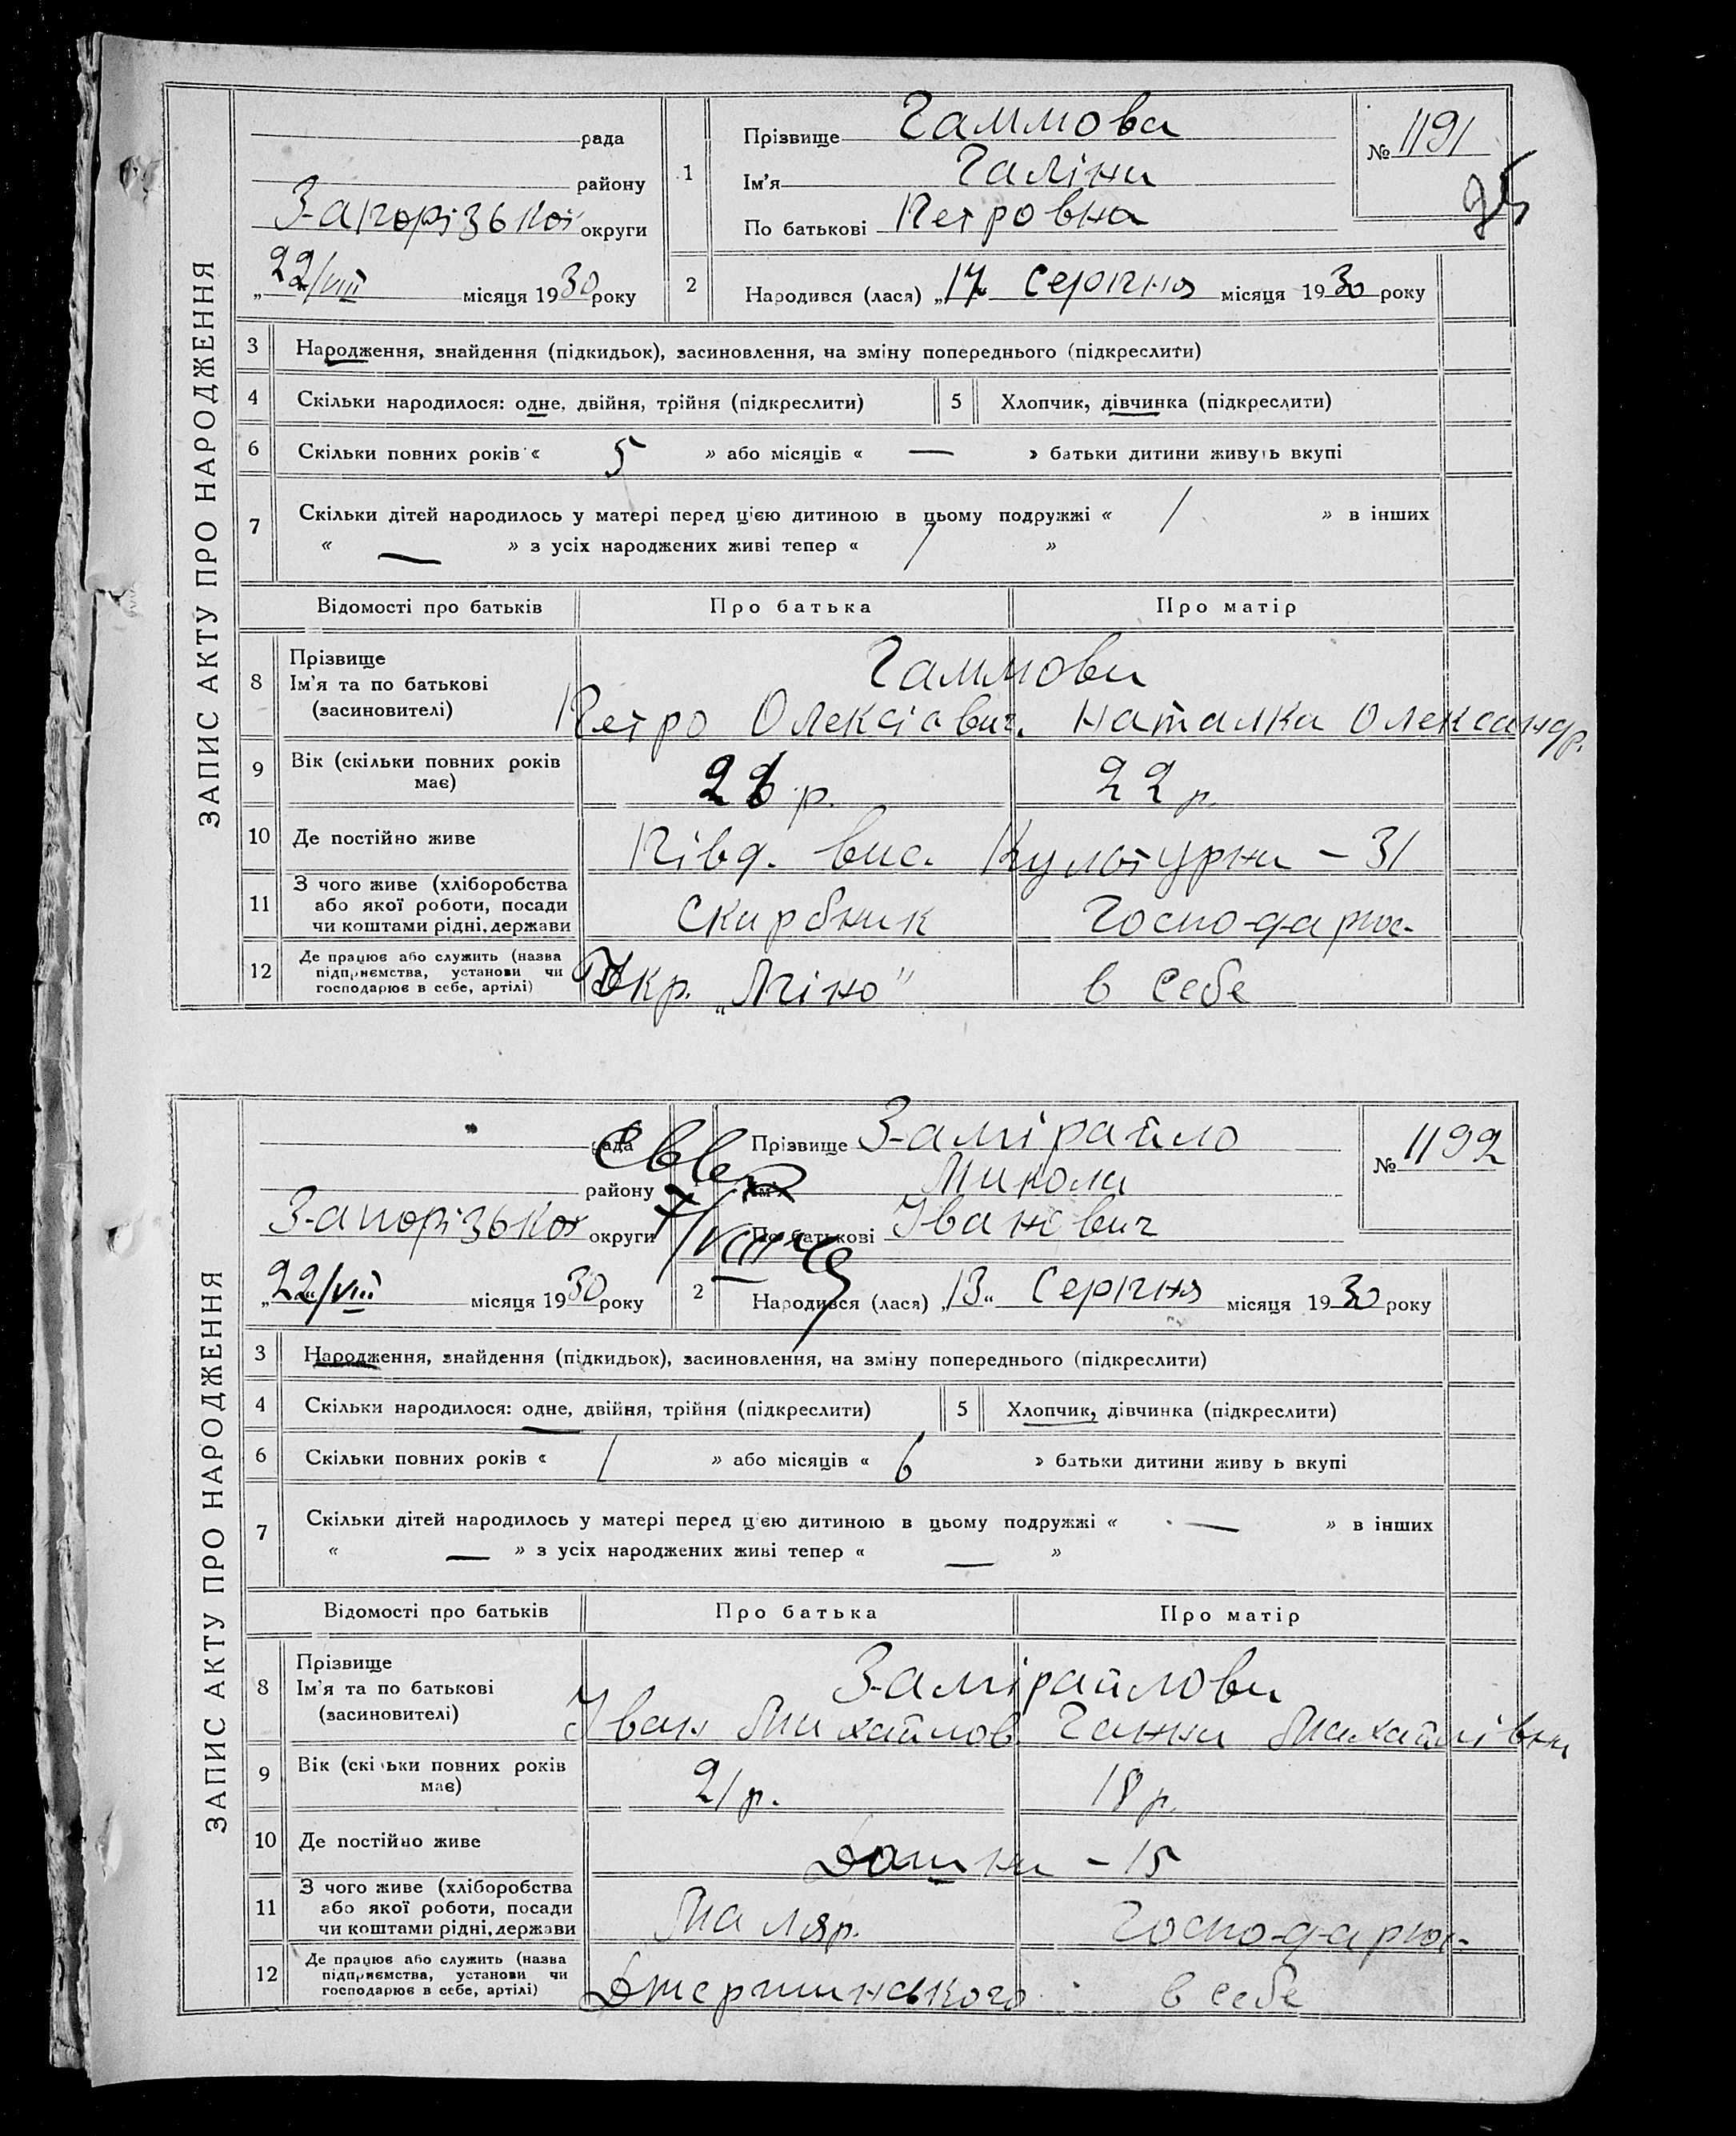 ЗАПИС АКТУ ПРО НАРОДЖЕННЯ
рада
району
Запорізької округи
„22/VIII місяця 1930 року
1
Прізвище Гаммова
Ім'я Галіна
По батькові Петровна
№ 1191
2 Народився (лася) „17 Серпня місяця 1930 року
3 Народження, знайдення (підкидьок), засиновлення, на зміну попереднього (підкреслити)
4 Скільки народилося: одне, двійня, трійня (підкреслити) 5 Хлопчик, дівчинка (підкреслити)
6 Скільки повних років « 5 » або місяців « — » батьки дитини живуть вкупі
7 Скільки дітей народилось у матері перед цією дитиною в цьому подружжі « 1 » в інших
« — » з усіх народжених живі тепер « 1 »
Відомості про батьків Про батька Про матір
8 Прізвище
Ім'я та по батькові
(засиновителі)
Гаммови
Петро Олексієвич. Наталка Олександр.
9 Вік (скільки повних років має) р. 22 р.
10 Де постійно живе Півд. вис. Культурна – 31
11 З чого живе (хліборобства
або якої роботи, посади
чи коштами рідні, держави
Скарбник Господарює-
12 Де працює або служить (назва
підприємства, установи чи
господарює в себе, артілі)
Укр. „Міно" в себе
ЗАПИС АКТУ ПРО НАРОДЖЕННЯ
рада
району
Запорізької округи
„22/VIII місяця 1930 року
Прізвище Замірайло
Ім'я Микола
По батькові Іванович
№ 1192
2 Народився (лася) „13„ Серпня місяця 1930 року
3 Народження, знайдення (підкидьок), засиновлення, на зміну попереднього (підкреслити)
4 Скільки народилося: одне, двійня, трійня (підкреслити) 5 Хлопчик, дівчинка (підкреслити)
6 Скільки повних років « 1 » або місяців « 6 » батьки дитини живу ь вкупі
7 Скільки дітей народилось у матері перед цією дитиною в цьому подружжі « — » в інших
« — » з усіх народжених живі тепер « — »
Відомості про батьків Про батька Про матір
8 Прізвище
Ім'я та по батькові
(засиновителі)
Замірайлови
Іван Михайлов. Ганна Михайлівна
9 Вік (скільки повних років має) 21 р. 18 р.
10 Де постійно живе – 15
11 З чого живе (хліборобства
або якої роботи, посади
чи коштами рідні, держави
Маляр. Господарює-
12 Де працює або служить (назва
підприємства, установи чи
господарює в себе, артілі)
Джержинського в себе